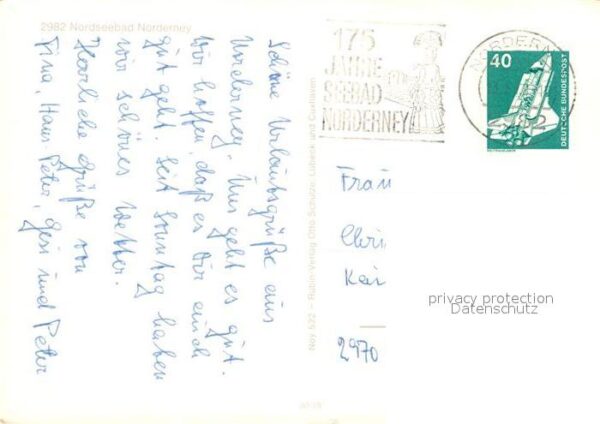 2982 Nordseebad Norderney
Schöne Urlaubsgrüße aus
Norderney. Uns geht es gut.
Wir hoffen, daß es Dir auch
gut geht. Seit Sonntag haben
wir schönes Wetter.
Herzliche Grüße von
Tina, Hans-Peter, und Peter
Rubin-Verlag Otto Schütze, Lübeck und
175
JAHRE
SEEBAD
NORDERNEY
NORDERN
40
DEUTSCHE BUNDESPOST
Frau
Chri
Kai
2970
privacy protection
Datenschutz